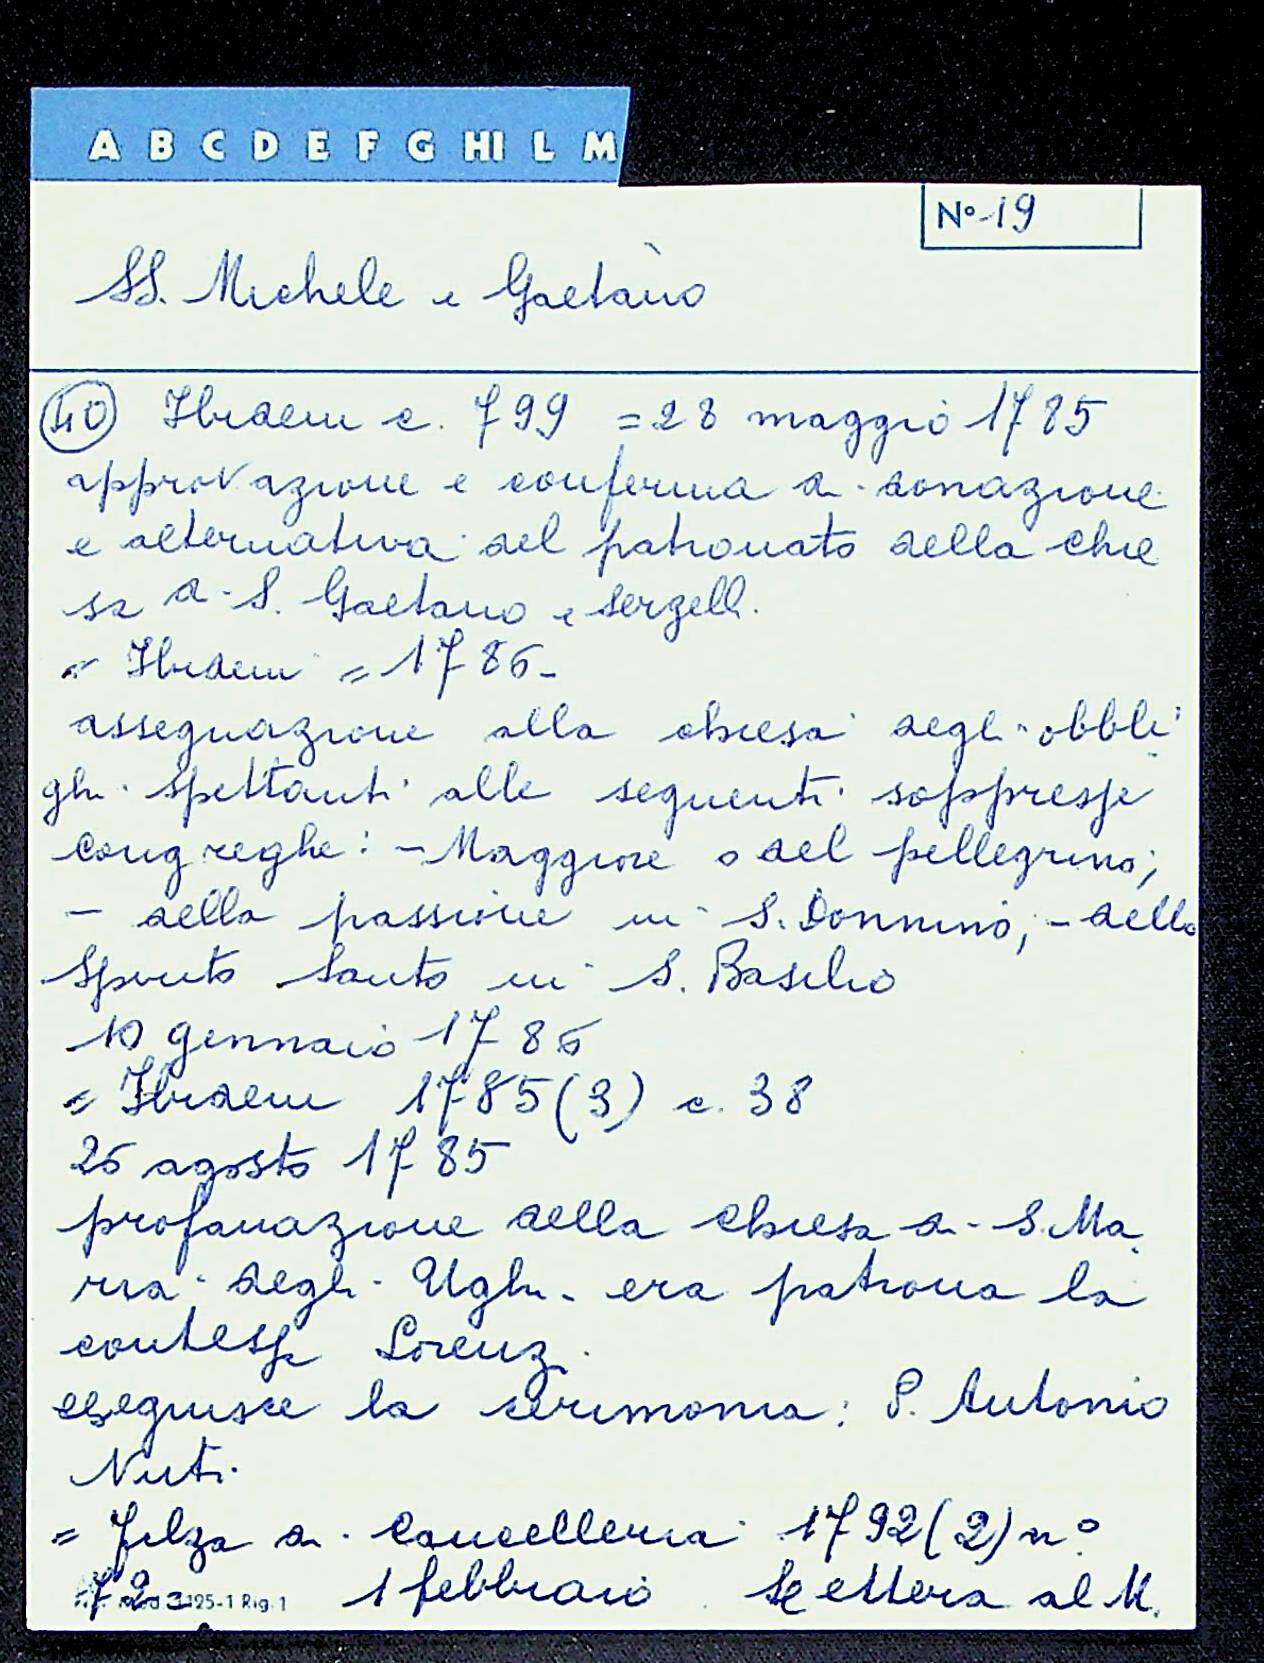 A B C D E F G HI L M
N° 19
SS. Michele e Gaetano
40 Ibidem c. 799 = 28 maggio 1785
approvazione e conferma di donazione
e alternativa del patronato della chie
sa di S. Gaetano e Serzelli.
= Ibidem = 1786-
assegnazione alla chiesa degli obbli
ghi spettanti alle seguenti soppresse
congreghe: - Maggiore o del pellegrino;
- della passione in S. Donnino; - dello
Spirito Santo in S. Basilio
10 gennaio 1786
= Ibidem 1785(3) c. 38
26 agosto 1785
profanazione della chiesa di S. Ma
ria degli Ughi. era patrona la
contessa Lorenzi.
eseguisce la cerimonia: P. Antonio
Nuti.
= filza di Cancelleria 1792(2) n°
72 = 1 febbraio Lettera al M.
125-1 Rig. 1